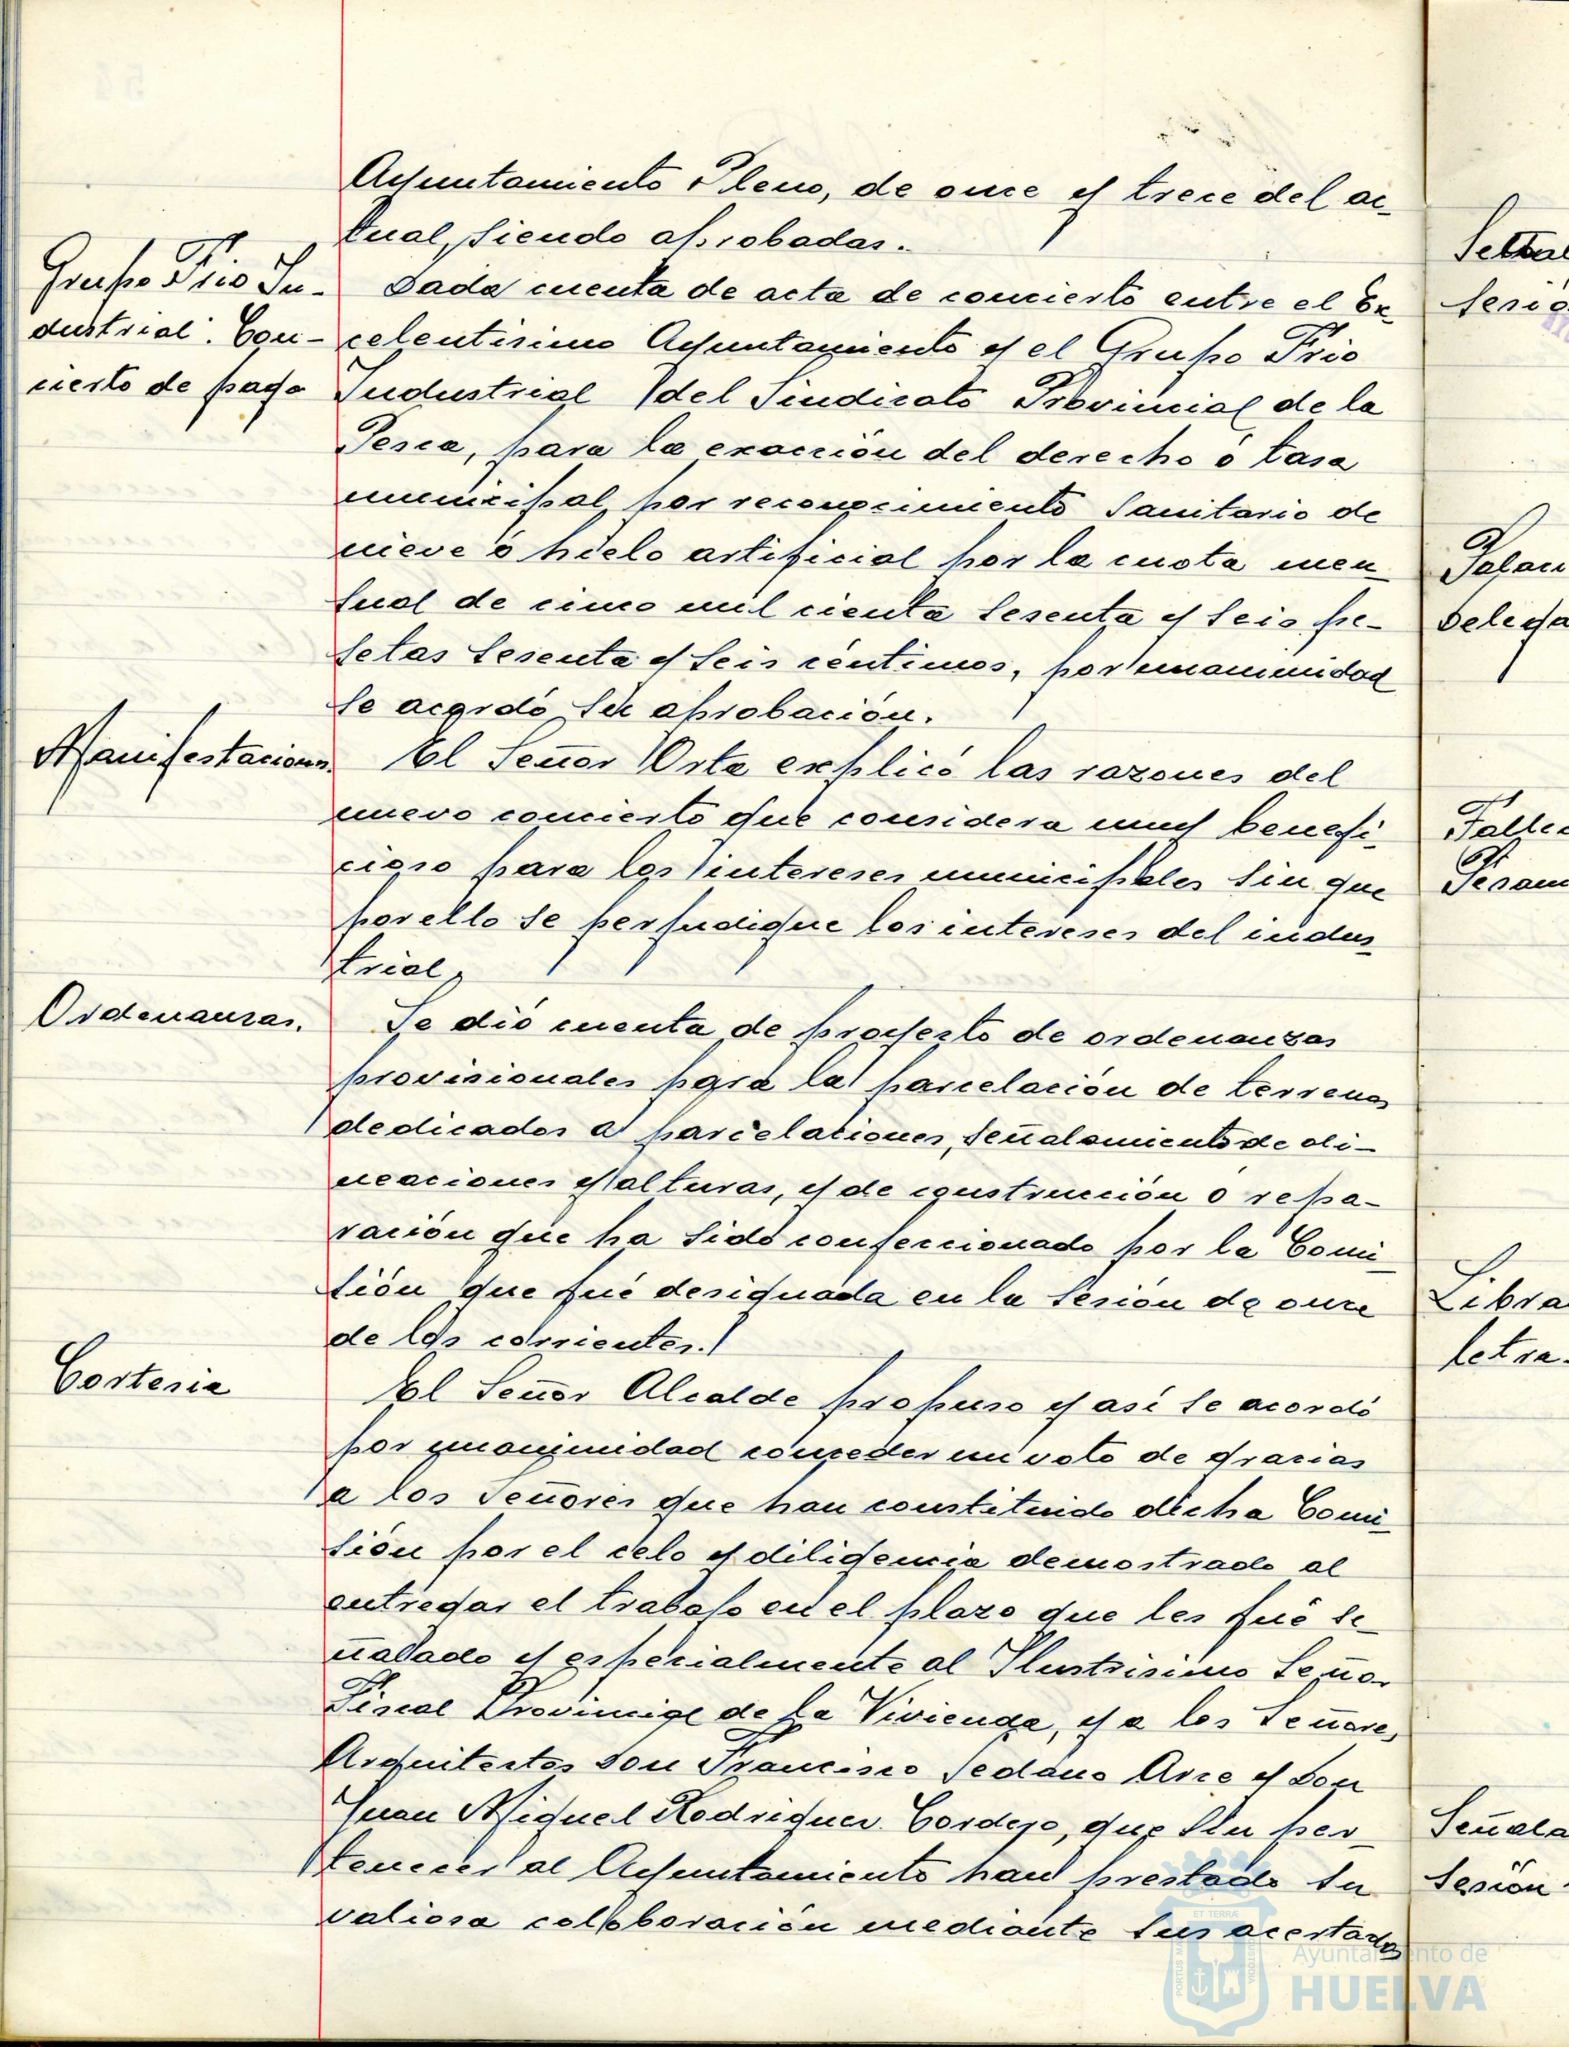 Ayuntamiento Pleno, de once y trece del ac-
tual, siendo aprobadas.
Grupo Frio In-
dustrial. Con-
cierto de pago
Dada cuenta de acta de concierto entre el Ex-
celentisimo Ayuntamiento y el Grupo Frio
Industrial del Sindicato Provincial de la
Pesca, para la exacción del derecho ó tasa
municipal por reconocimiento Sanitario de
nieve ó hielo artificial por la cuota men-
sual de cinco mil cienta sesenta y seis pe-
setas sesenta y seis céntimos, por unanimidad
se acordó su aprobación.
Manifestaciones.
El Señor Orta explicó las razones del
nuevo concierto que considera muy benefi-
cioso para los intereses municipales sin que
por ello se perjudique los intereses del indus-
trial.
Ordenanzas.
Se dió cuenta de proyecto de ordenanzas
provisionales para la parcelación de terrenos
dedicados a parcelaciones, señalamiento de ali-
neaciones y alturas, y de construcción o repa-
ración que ha sido confeccionado por la Comi-
sión que fué designada en la sesión de once
de los corrientes.
Cortesia
El Señor Alcalde propuso y así se acordó
por unanimidad conceder un voto de gracias
a los Señores que han constituido dicha Comi-
sión por el celo y diligencia demostrado al
entregar el trabajo en el plazo que les fué se-
ñalado y especialmente al Ilustrisimo Señor
Fiscal Provincial de la Vivienda, y a los Señores
Arquitectos Don Francisco Sedano Arce y Don
Juan Miguel Rodriguez Cordero, que sin per-
tenecer al Ayuntamiento han prestado su
valiosa colaboración mediante sus acertados
Libra
letra.
Señala
Sesión
Ayuntamiento de
HUELVA